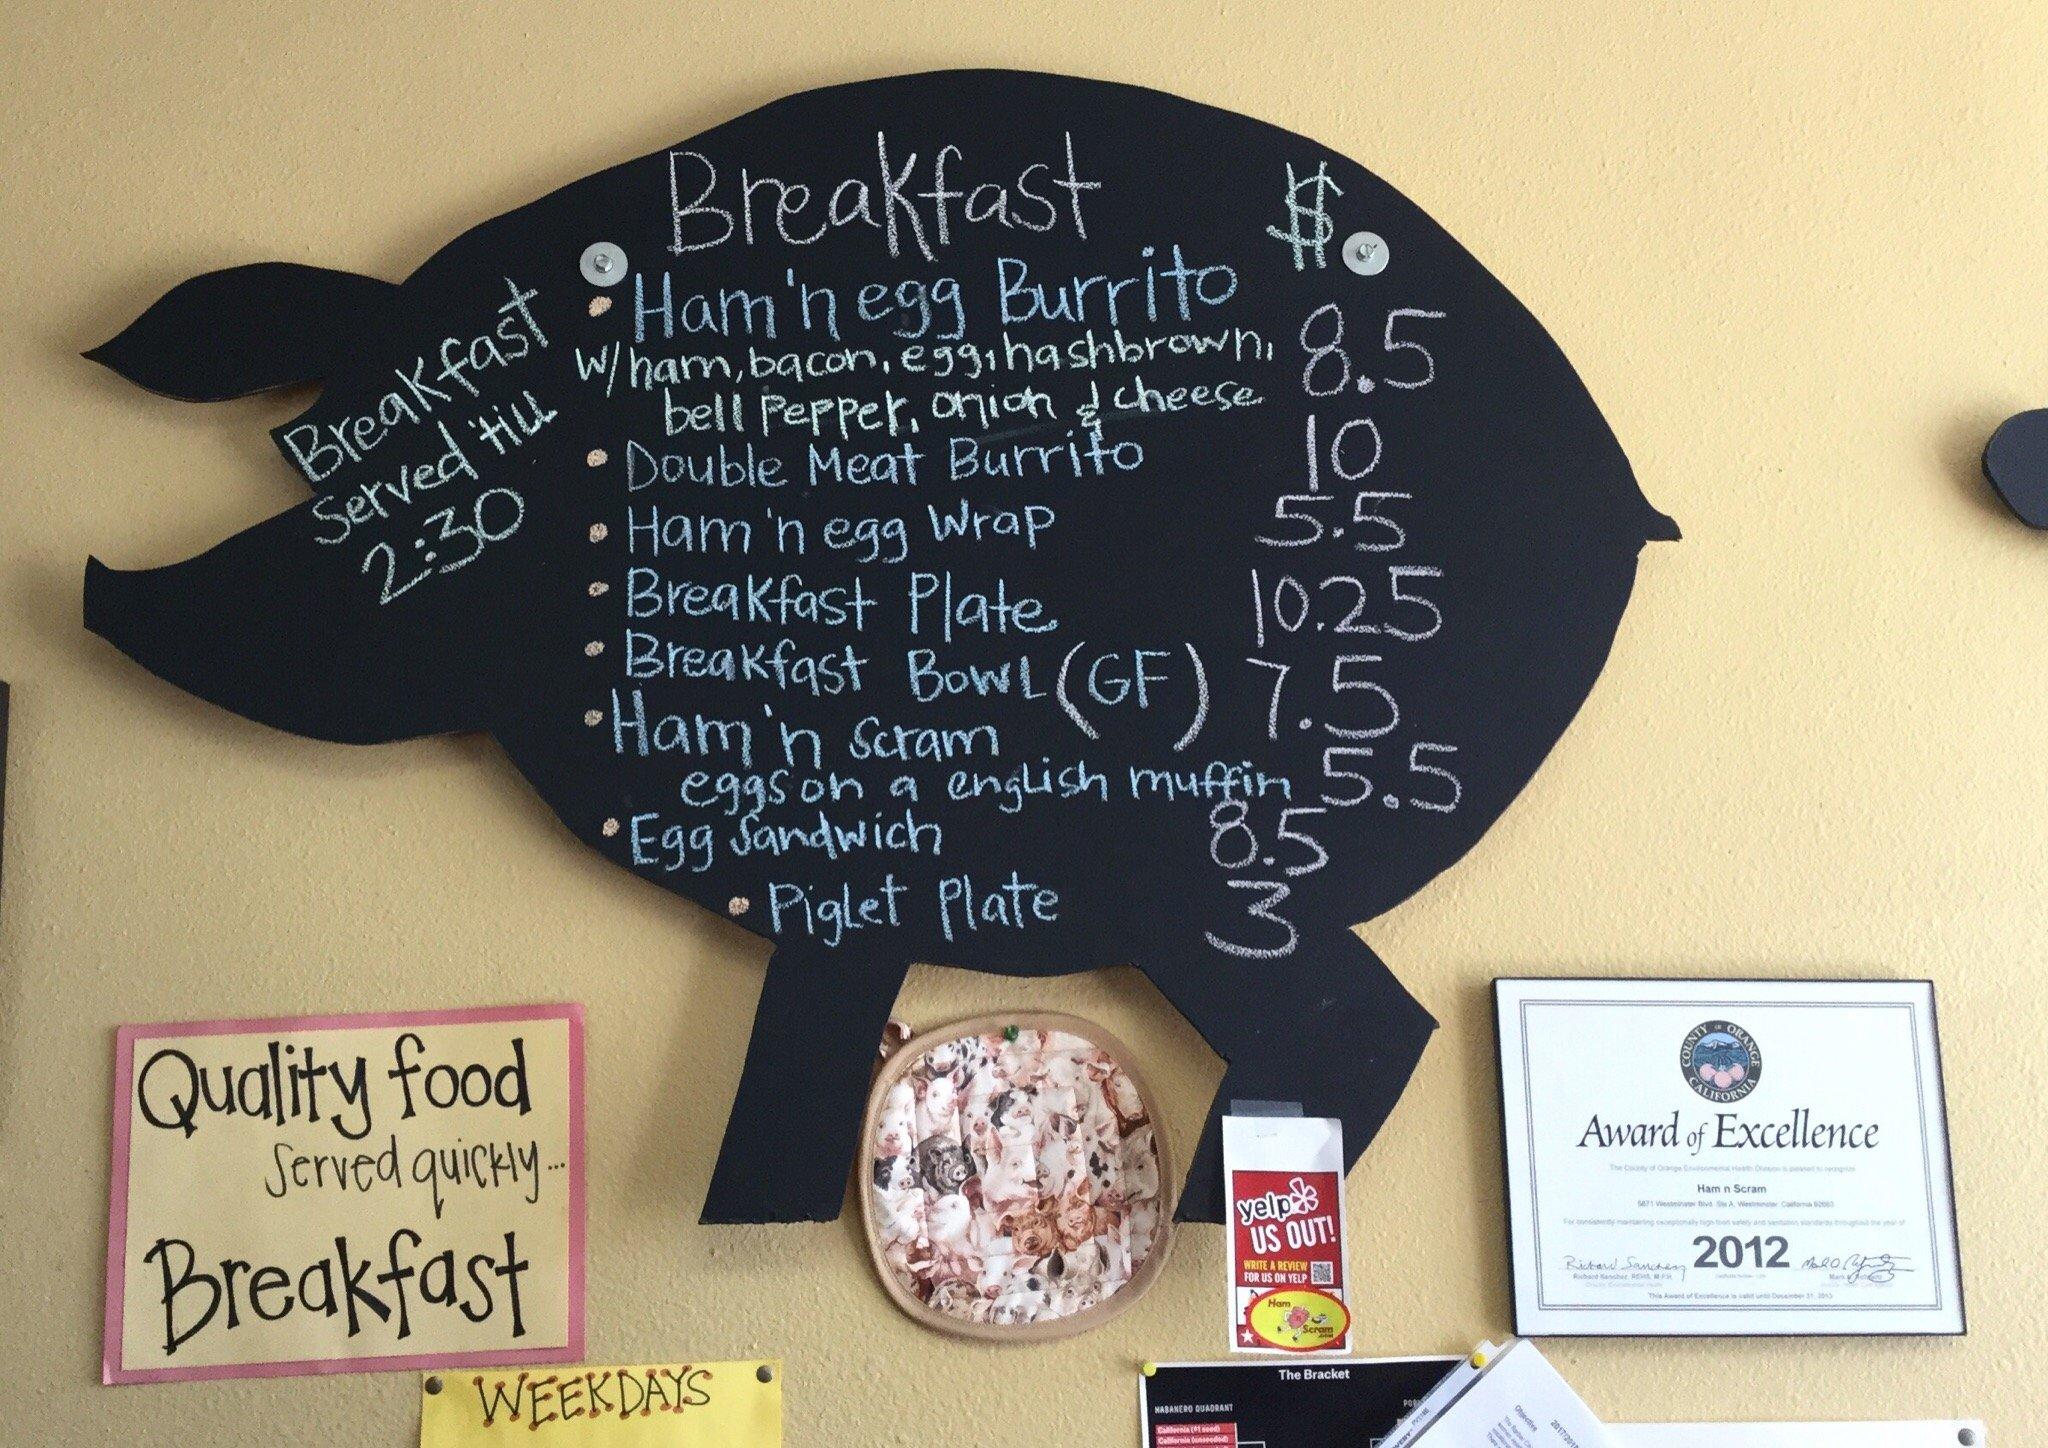 Breakfast $
• Ham 'n egg Burrito 8.5
w/ham, bacon, egg, hashbrown,
bell pepper, onion & cheese
• Double Meat Burrito 10
• Ham 'n egg Wrap 5.5
• Breakfast Plate 10.25
• Breakfast Bowl (GF) 7.5
• Ham 'n Scram
eggs on a english muffin 5.5
• Egg Sandwich 8.5
• Piglet Plate 3
Breakfast
Served 'till
2:30
Quality food
served quickly...
Breakfast
WEEKDAYS
yelp
US OUT!
WRITE A REVIEW
FOR US ON YELP
Ham
n
Scram
.com
COUNTY OF ORANGE
CALIFORNIA
Award of Excellence
The County of Orange Environmental Health Division is pleased to recognize
Ham n Scram
5871 Westminster Blvd. Ste A, Westminster, California 92683
For consistently maintaining exceptionally high food safety and sanitation standards throughout the year of
2012
Richard Sanchez
Richard Sanchez, REHS, M.P.H.
Mark
This Award of Excellence is valid until December 31, 2013
The Bracket
HABANERO QUADRANT
California (#1 seed)
California (unseeded)
Objective